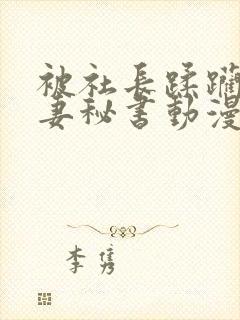 被社長蹂躪
妻秘書動漫
李隽